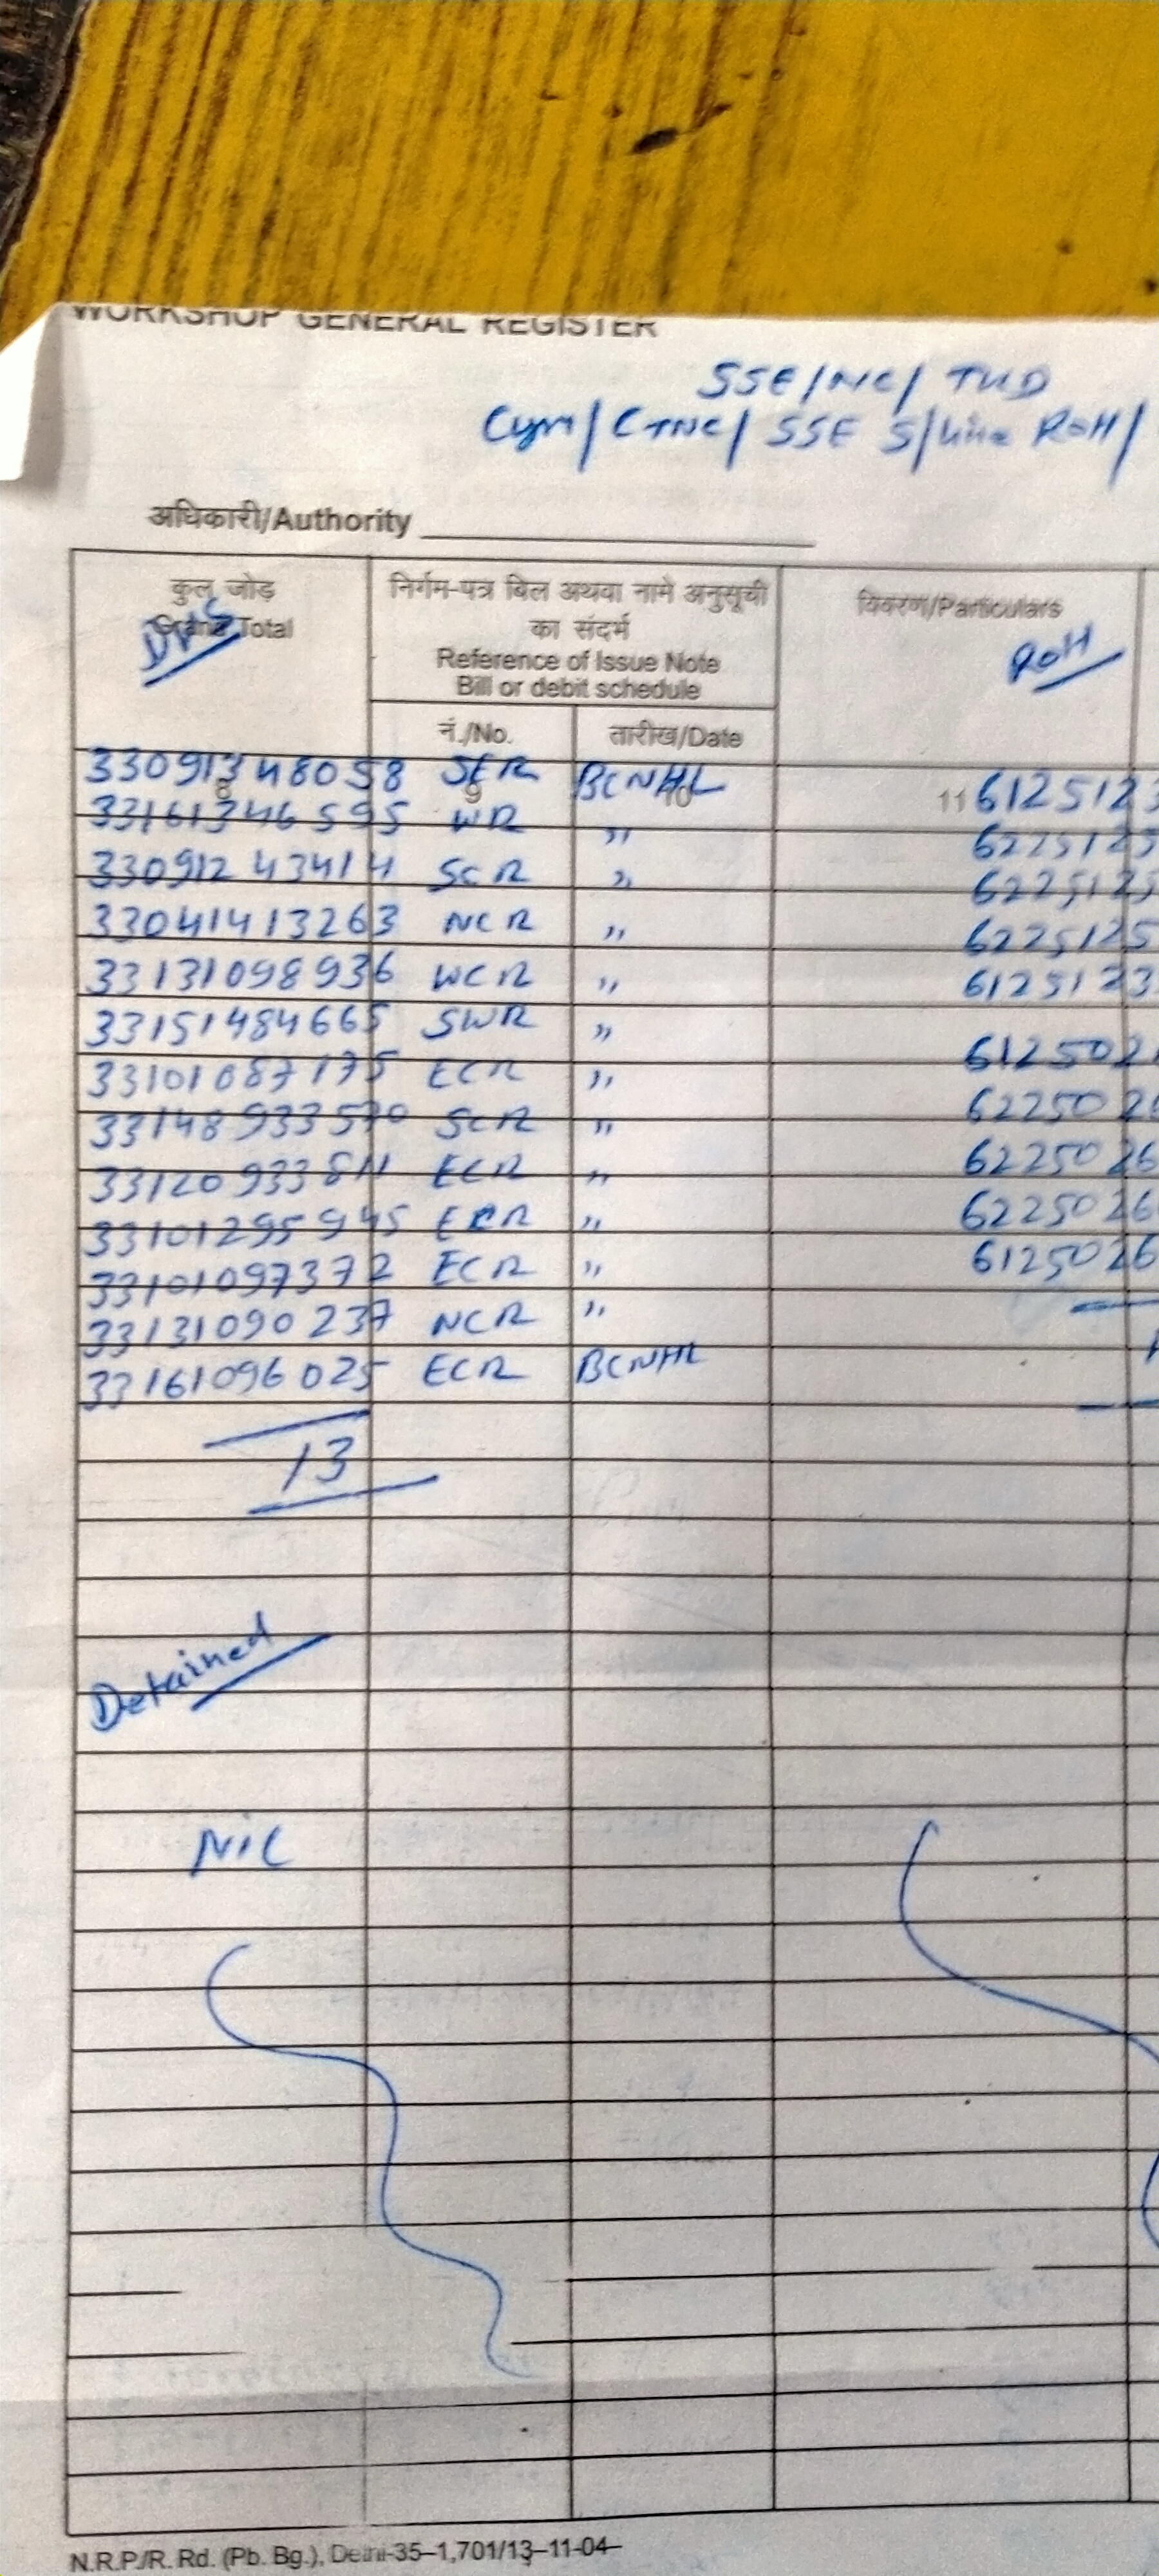 WORKSHOP GENERAL REGISTER
SSE/NC/ TKD
Cym/ CTNC/ SSE S/Line ROH/
अधिकारी/Authority
कुल जोड़ निर्गम-पत्र बिल अथवा नामे अनुसूची विवरण/Particulars
Grand Total का संदर्भ
Reference of Issue Note ROH
Bill or debit schedule
नं./No. तारीख/Date
8 9 10 11
33091348058 SER BCNHL 6125123
33161346595 WR " 6225125
33091243414 SCR " 6225125
33041413263 NCR " 6225125
33131098936 WCR " 6125123
33151484665 SWR "
6125021
33101087175 ECR "
33148933570 SCR " 6225026
33120933811 ECR " 6225026
33101295945 ECR " 6225026
33101097372 ECR " 6125026
33131090237 NCR "
33161096025 ECR BCNHL
13
Detained
NIL
N.R.P./R. Rd. (Pb. Bg.), Delhi-35–1,701/13–11-04–